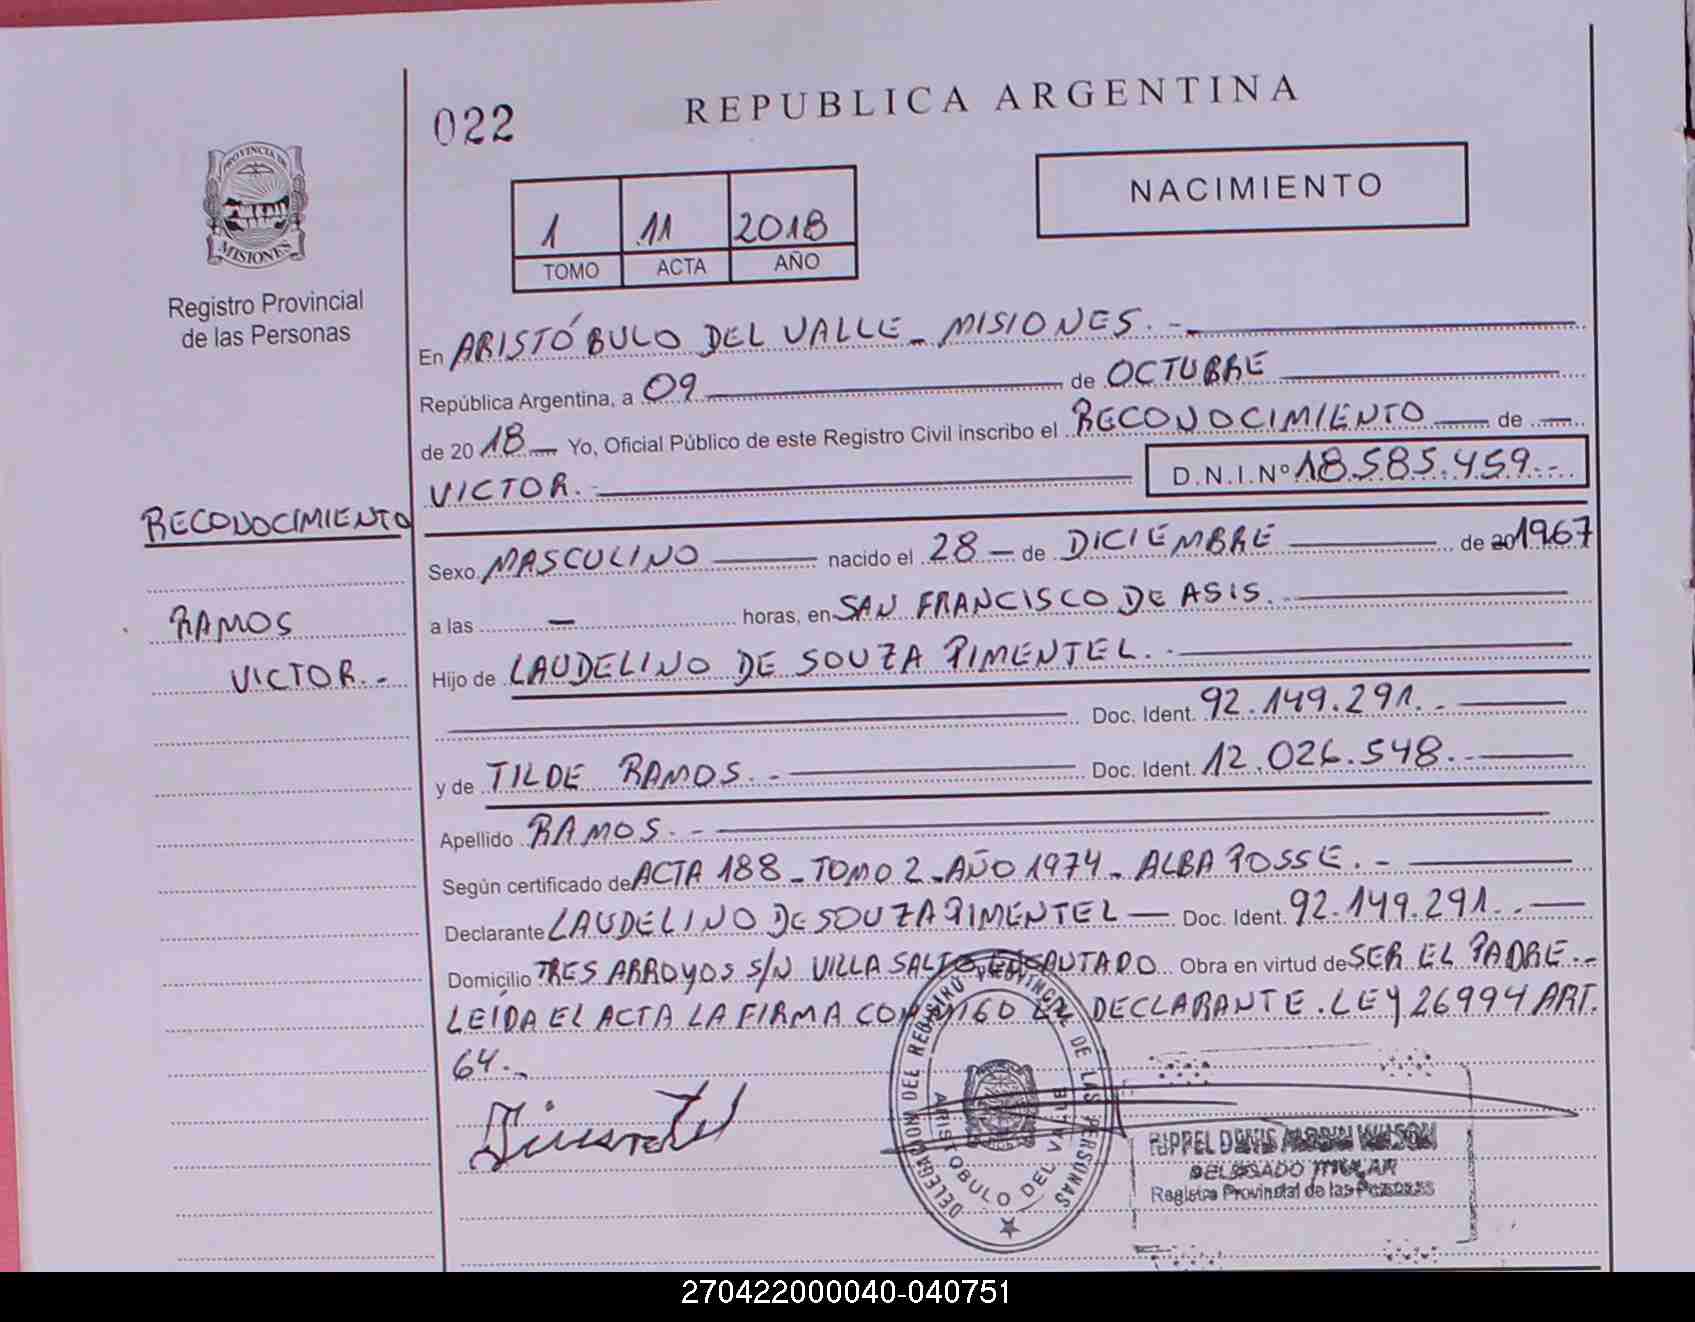 022
REPUBLICA ARGENTINA
PROVINCIA DE
MISIONES
Registro Provincial
de las Personas
1 11 2018
TOMO ACTA AÑO
NACIMIENTO
En ARISTÓBULO DEL VALLE - MISIONES. -
República Argentina, a 09 de OCTUBRE
de 2018 - Yo, Oficial Público de este Registro Civil inscribo el RECONOCIMIENTO de
VICTOR. - D.N.I.Nº 18.585.459 -
RECONOCIMIENTO
RAMOS
VICTOR. -
Sexo MASCULINO nacido el 28 - de DICIEMBRE de 20 1967
a las - horas, en SAN FRANCISCO DE ASIS.
Hijo de LAUDELINO DE SOUZA PIMENTEL. -
Doc. Ident. 92.149.291. -
y de TILDE RAMOS. - Doc. Ident. 12.026.548. -
Apellido RAMOS. -
Según certificado de ACTA 188 - TOMO 2 - AÑO 1974 - ALBA POSSE. -
Declarante LAUDELINO DE SOUZA PIMENTEL - Doc. Ident. 92.149.291. -
Domicilio TRES ARROYOS S/N VILLA SALTO ENCANTADO Obra en virtud de SER EL PADRE. -
LEÍDA EL ACTA LA FIRMA CONMIGO EL DECLARANTE. LEY 26994 ART.
64. -
DELEGACION DEL REGISTRO PROVINCIAL DE LAS PERSONAS
ARISTOBULO DEL VALLE
DELEGADO TITULAR
Registro Provincial de las Personas
270422000040-040751